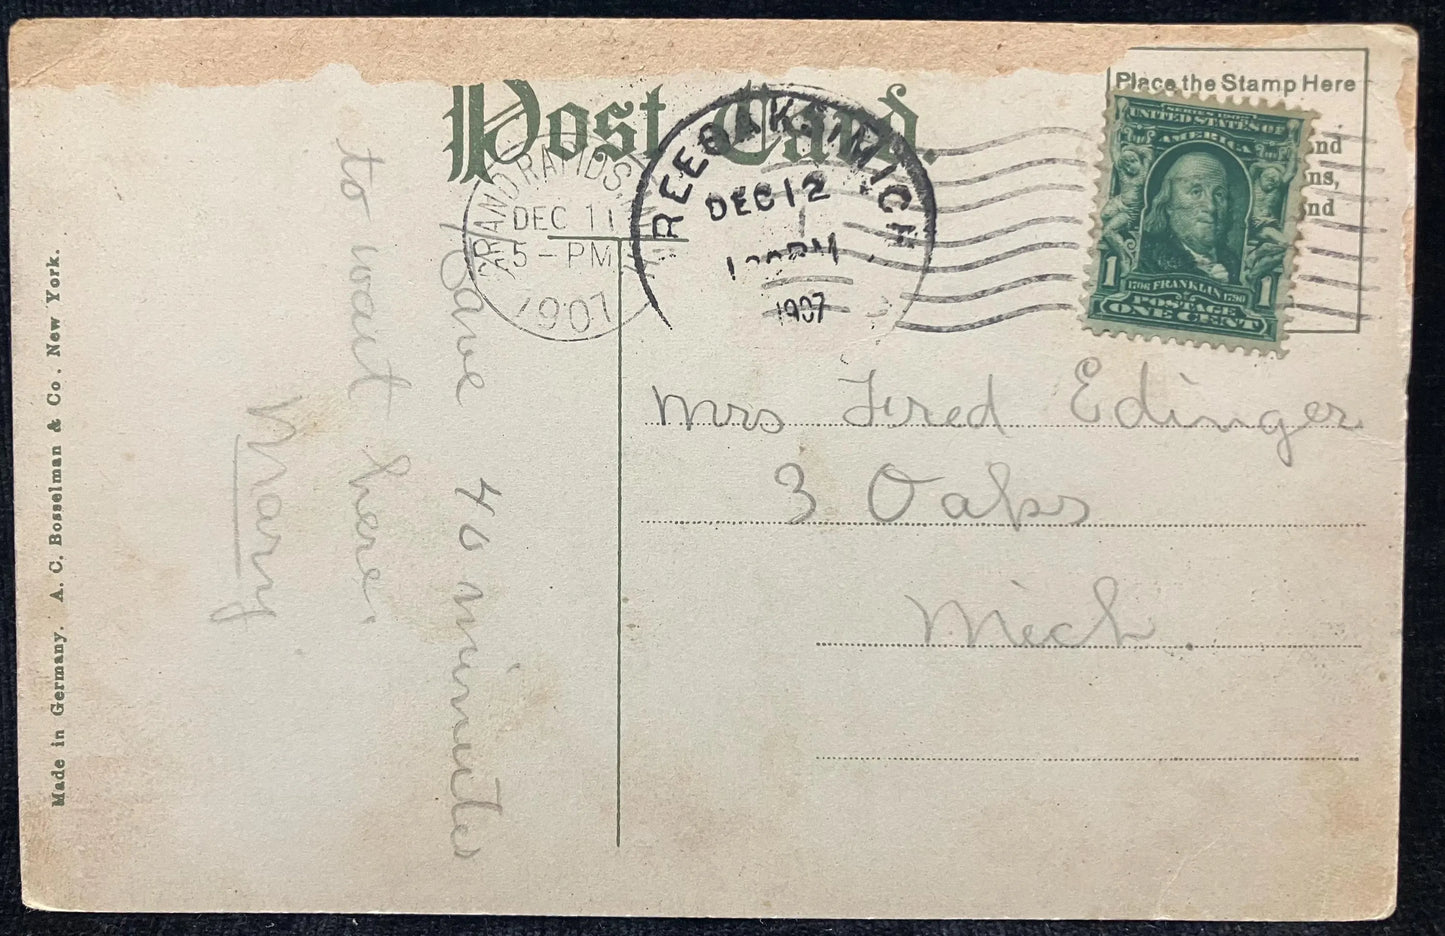 Post Card.
Place the Stamp Here
nd
ns,
nd
GRAND RAPIDS
DEC 11
5-PM
1907
REE OAKS, MICH
DEC 12
PM
1907
SERIES 1902
UNITED STATES OF
AMERICA
1 1
1706 FRANKLIN 1790
POSTAGE
ONE CENT
Mrs Fred Edinger
3 Oaks
Mich.
Have 40 minutes
to wait here.
Mary
Made in Germany. A. C. Bosselman & Co. New York.